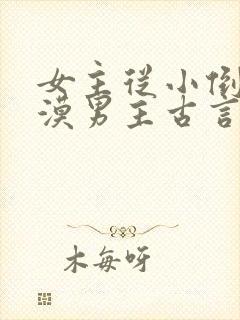 女主从小倒
漠男主古言
木每呀